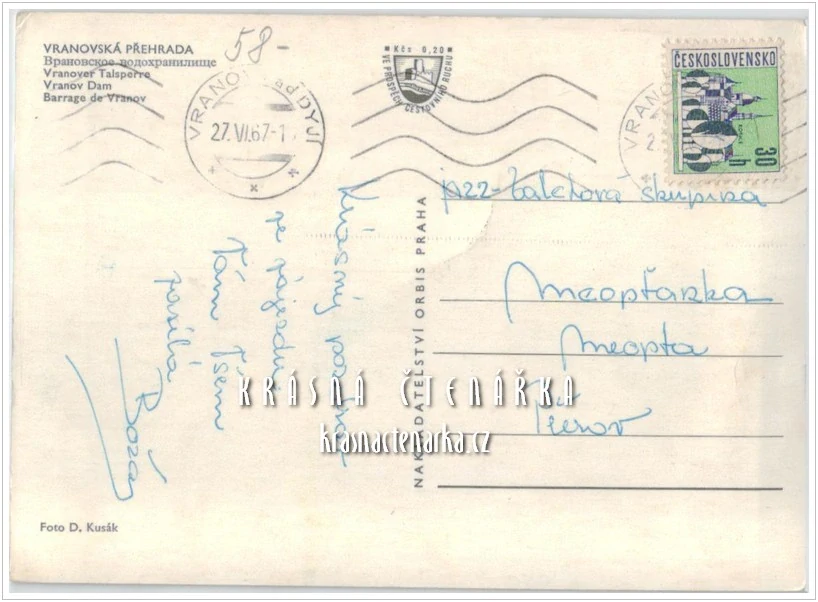 VRANOVSKÁ PŘEHRADA
Врановское водохранилище
Vranover Talsperre
Vranov Dam
Barrage de Vranov
58-
VRANOV nad DYJÍ
27.VI.67-1
Kčs 0,20
VE PROSPĚCH CESTOVNÍHO RUCHU
VRANOV
2.
ČESKOSLOVENSKO
30 h
Krásný pozdrav
ze zájezdu
Vám všem
posílá
Boža
NAKLADATELSTVÍ ORBIS PRAHA
skupina
Meopťanka
Meopta
Přerov
KRÁSNÁ ČTENÁŘKA
krasnactenarka.cz
Foto D. Kusák